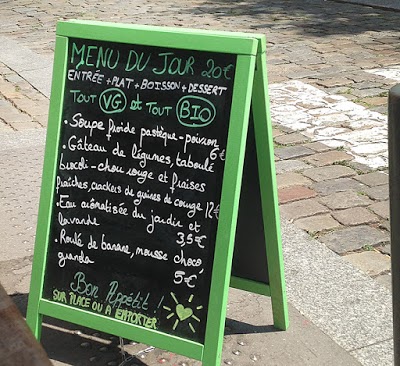 MENU DU JOUR 20€
ENTRÉE + PLAT + BOISSON + DESSERT
TOUT VG et TOUT BIO
• Soupe froide pastèque-poivron
6€
• Gâteau de légumes, taboulé
brocoli-chou rouge et fraises
fraîches, crackers de graines de courge 12€
• Eau aromatisée du jardin et
lavande 3,5€
• Roulé de banane, mousse choco
granola 5€
Bon Appétit !
SUR PLACE OU A EMPORTER